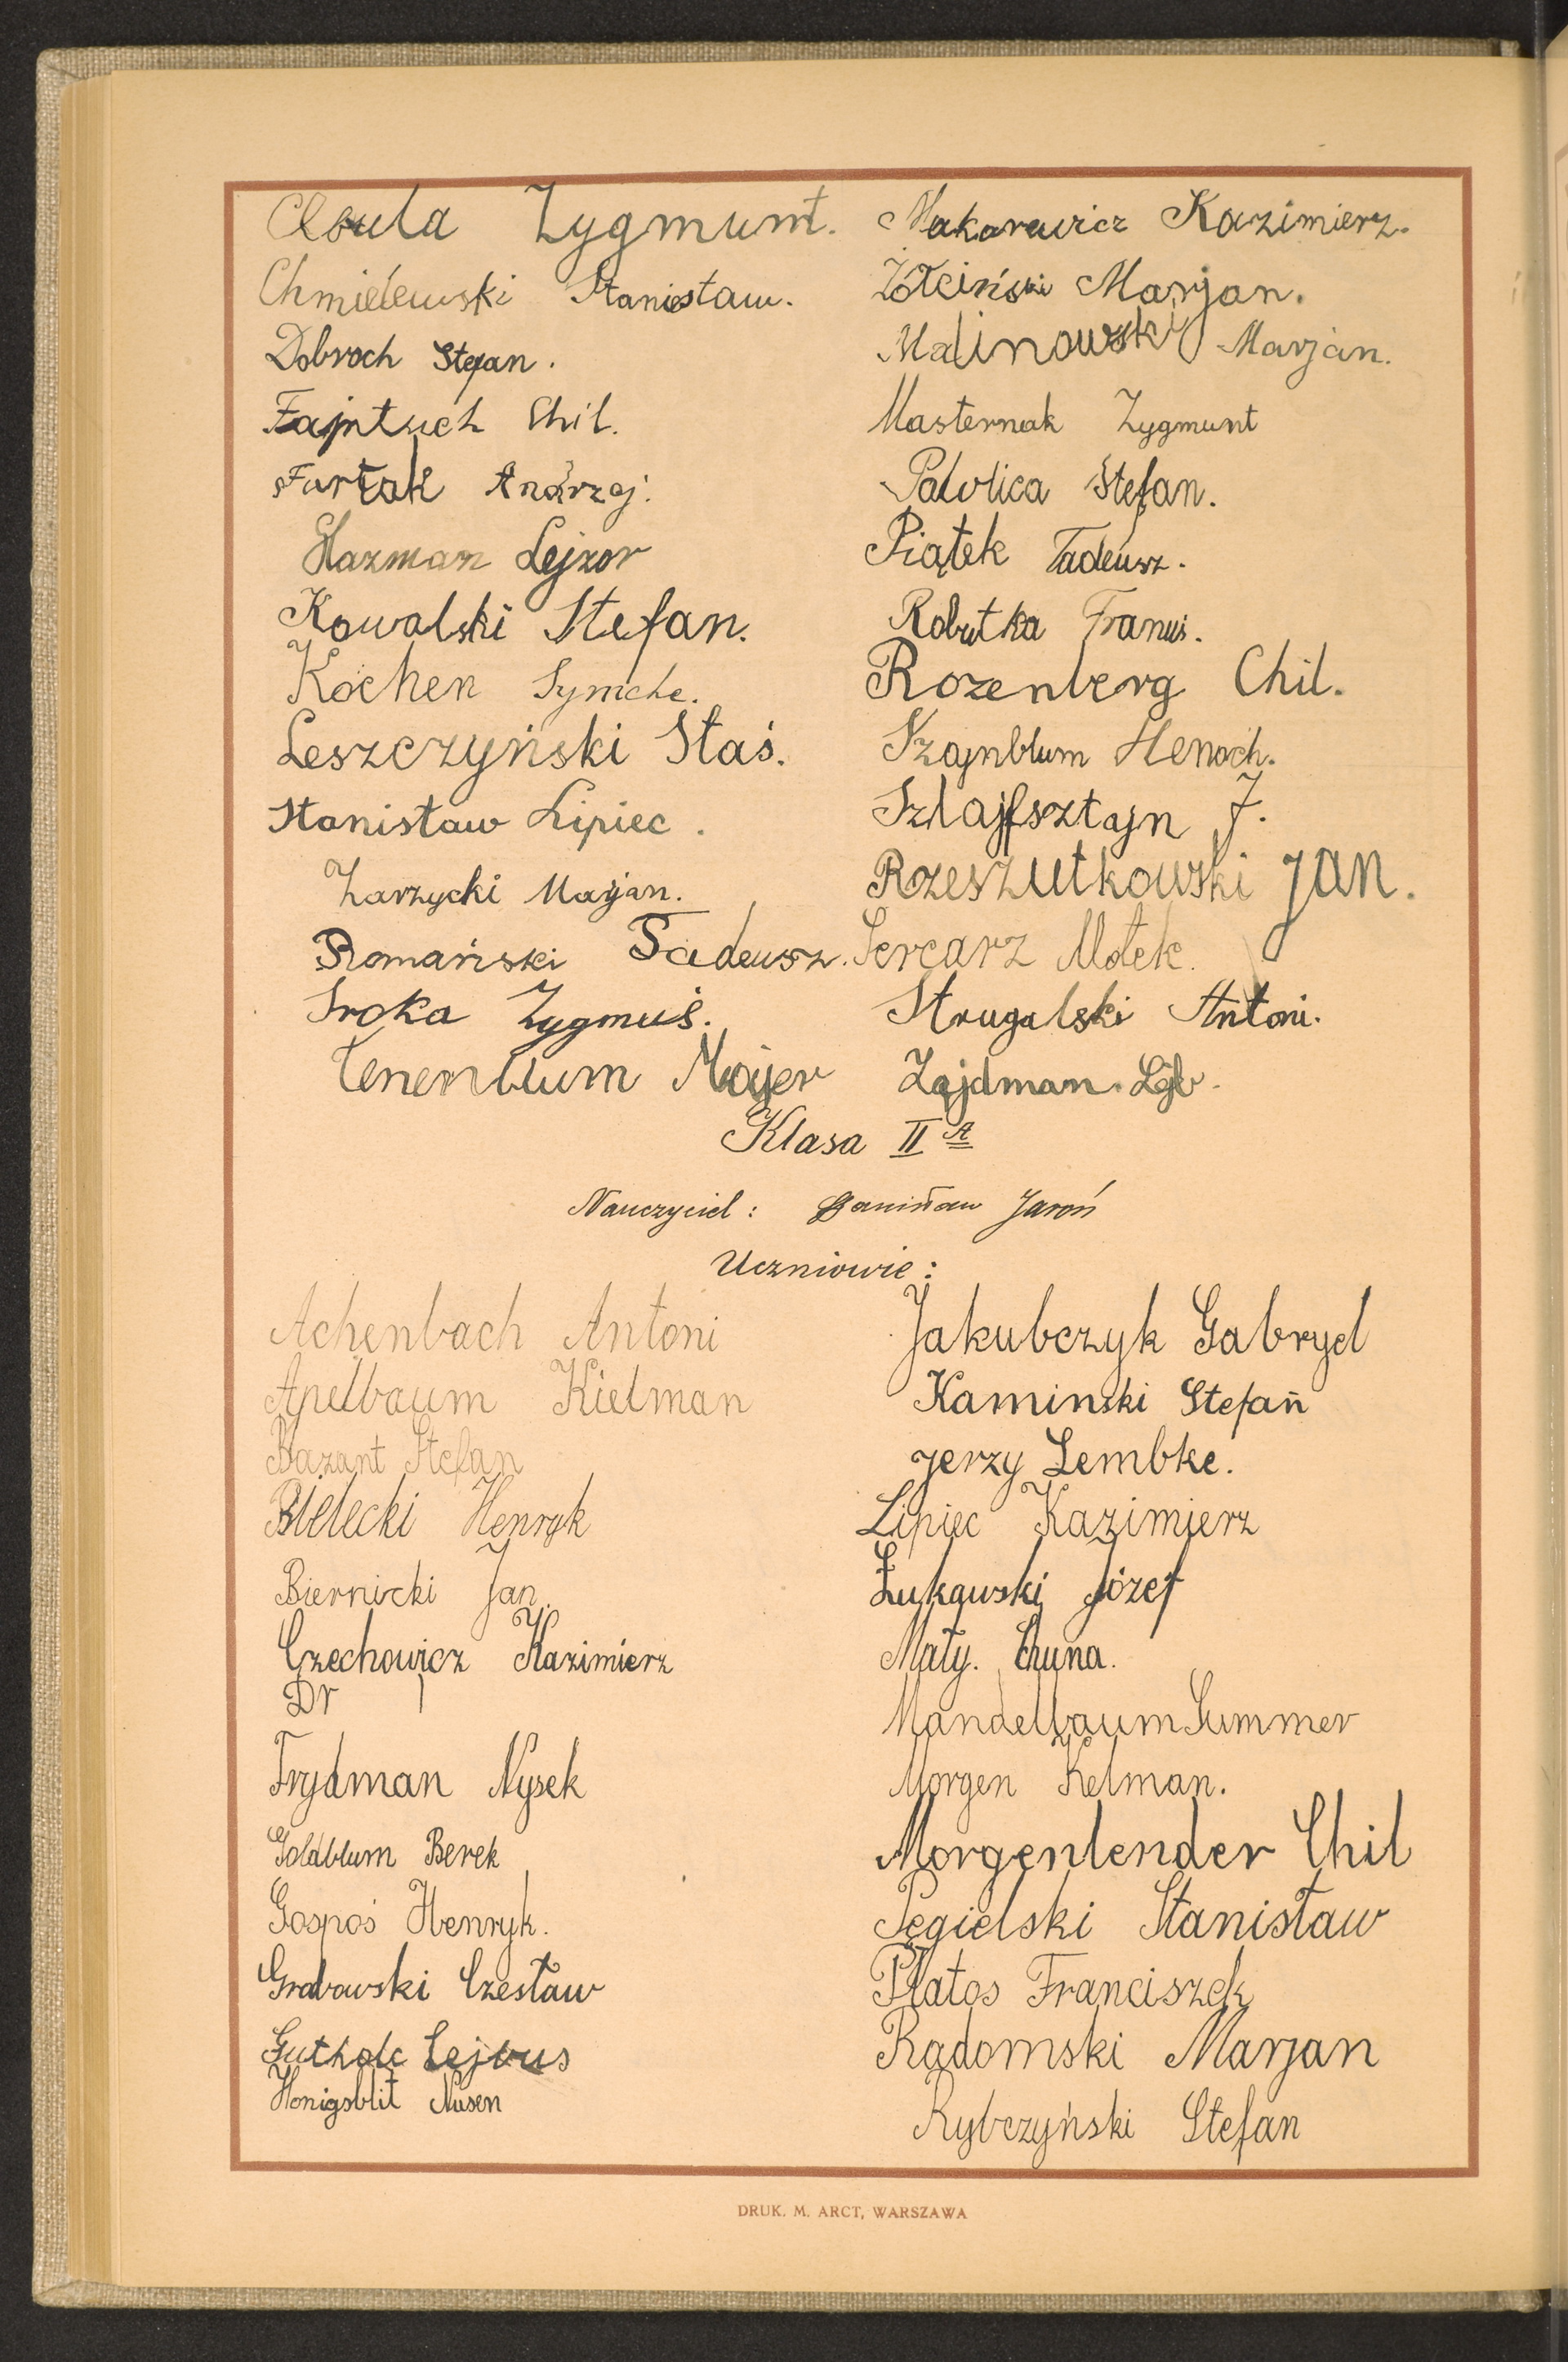 Cebula Zygmunt.
Chmielewski Stanisław.
Dobroch Stefan.
Fajntuch Chil.
Furtak Andrzej.
Hazman Lejzor
Kowalski Stefan.
Kochen Symche.
Leszczyński Staś.
Stanisław Lipiec.
Zarzycki Marjan.
Romański Tadeusz.
Sroka Zygmuś.
Tenenblum Majer
Makarewicz Kazimierz.
Żółciński Marjan.
Malinowski Marjan.
Masternak Zygmunt
Stefan.
Piątek Tadeusz.
Robutka Franuś.
Rozenberg Chil.
Szajnblum Henoch.
Szlajfsztajn J.
Rzeszutkowski Jan.
Sercarz Motek.
Strugalski Antoni.
Zajdman Lejb.
Klasa II A
Nauczyciel: Stanisław Jaroń
Uczniowie:
Achenbach Antoni
Apelbaum Kielman
Bazant Stefan
Bielecki Henryk
Biernicki Jan.
Czechowicz Kazimierz
Dr
Frydman Nysek
Goldblum Berek
Gospoś Henryk.
Grabowski Czesław
Gutholc Lejbus
Honigsblit Nusen
Jakubczyk Gabryel
Kaminski Stefan
Jerzy Lembke.
Lipiec Kazimierz
Łukawski Józef
Mały. Chuna.
Mandelbaum Summer
Morgen Kelman.
Morgenlender Chil
Pęgielski Stanisław
Płatos Franciszek
Radomski Marjan
Rybczyński Stefan
DRUK. M. ARCT, WARSZAWA